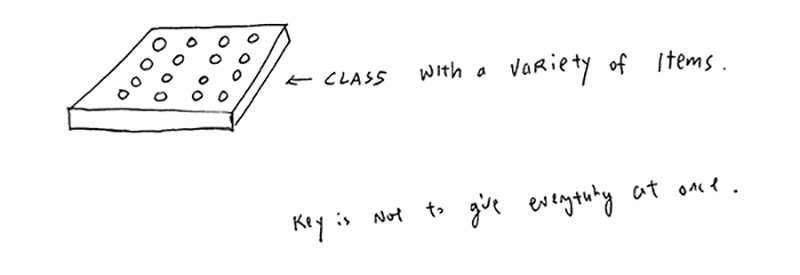 ← CLASS with a variety of items.
Key is not to give everything at once.